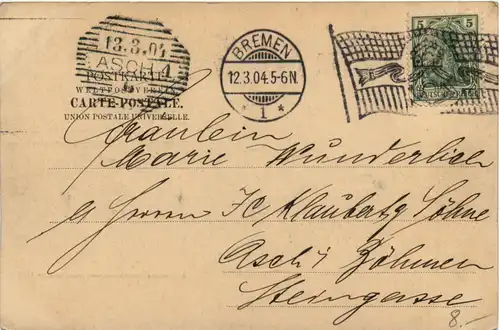 13.3.04
ASCH 1
POSTKARTE
WELTPOSTVEREIN
CARTE-POSTALE.
UNION POSTALE UNIVERSELLE.
BREMEN
12.3.04.5-6N.
* 1 *
5 5
Fräulein
Marie Wunderlich
Herrn Klaubert Söhne
Asch i/ Böhmen
Steingasse
8.-